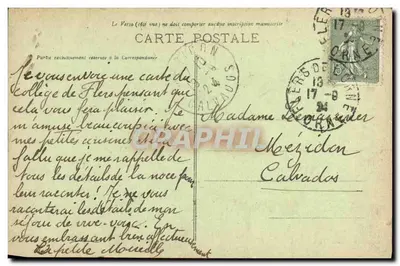 Le Verso (fait une) ne doit comporter aucune inscription manuscrite
CARTE POSTALE
Partie exclusivement réservée à la Correspondance
Je vous envoie une carte du
Collège de Flers pensant que
cela vous fera plaisir. Je
m'amuse beaucoup ici avec
mes petites cousines. Il a
fallu que je me rappelle de
tous les détails de la noce pour
leur raconter! Je ne vous
raconterai les détails de mon
séjour de vive-voix. En
vous embrassant bien affectueusement
La petite Marcelle
Madame
Mézidon
Calvados
CALVADOS
FLERS DE L'ORNE
13
17-8
24
FLERS
13
17-8
ORNE
CPARPHIL